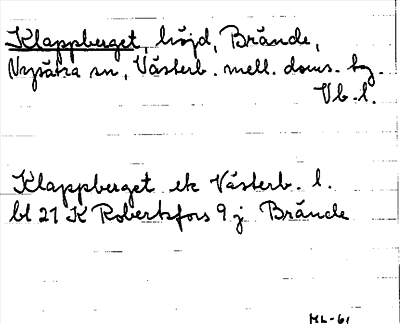 Klappberget, höjd, Brände,
Nysätra sn, Västerb. mell. doms. hg.
Vb. l.
Klappberget ek Västerb. l.
bl 21 K Robertsfors 9 j Brände
ML-61